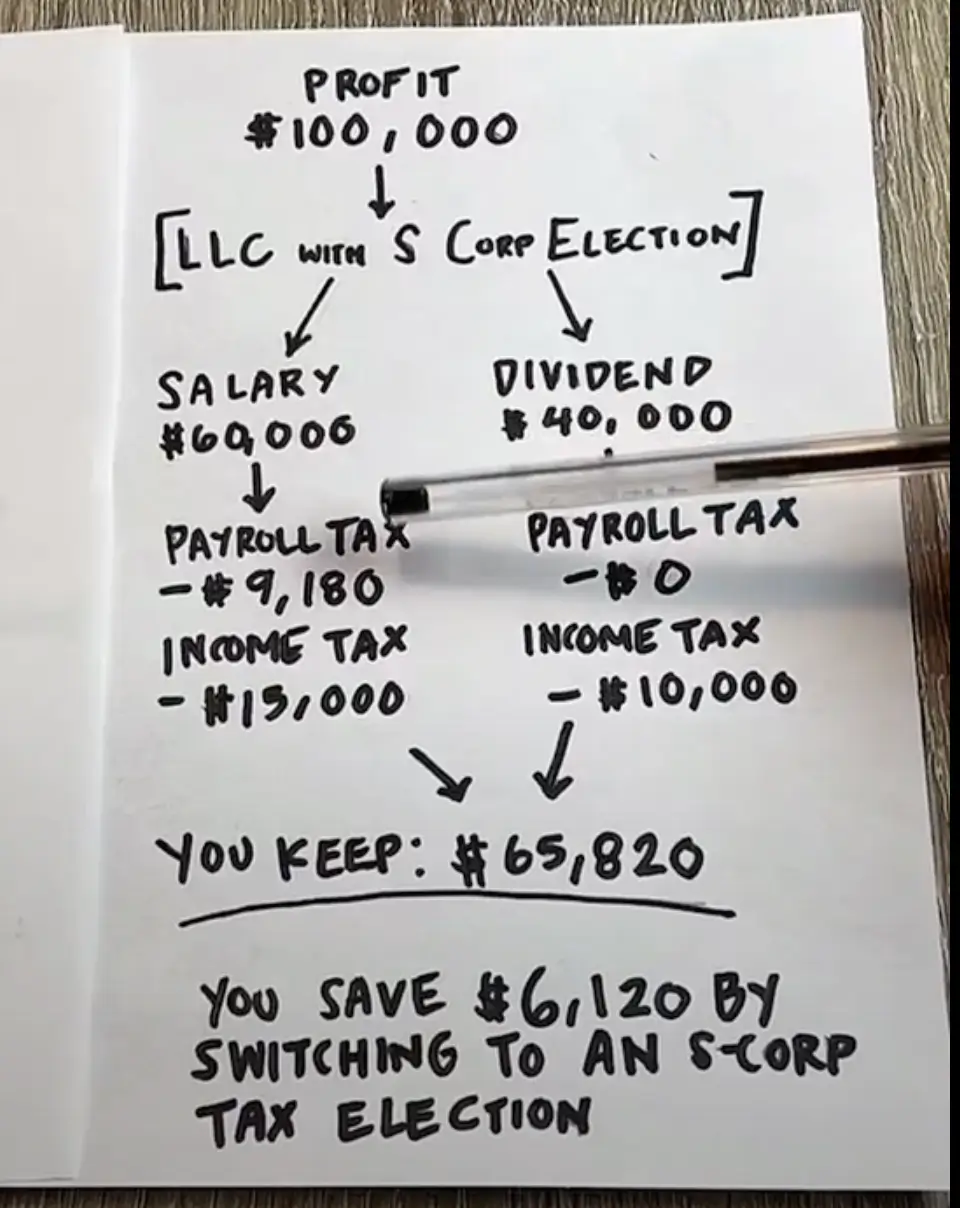 PROFIT
$100,000
[LLC WITH S CORP ELECTION]
SALARY
$60,000
DIVIDEND
$40,000
PAYROLL TAX
-$9,180
INCOME TAX
-$15,000
PAYROLL TAX
-$0
INCOME TAX
-$10,000
YOU KEEP: $65,820
YOU SAVE $6,120 BY
SWITCHING TO AN S-CORP
TAX ELECTION